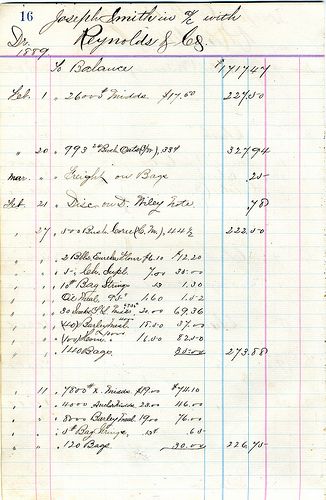 16 Joseph Smith in a/c with
Dr. Reynolds & Co.
1889
To Balance $1717 47
Feb. 1 " 2600 # Midds $17.50 227.50
" 20 " 993 Bush Oats 33¢ 327 94
Mar. " " Freight on Bags .25
Feb. 21 " Disc. on D. Wiley Note .78
" 27 " 500 Bush Corn (C. M.) 44½ 222.50
" " " 2 Bbls Eureka Flour $6.10 $12.20
" " " 5 " Ch. Supl. 7.00 35.00
" " " 10 # Bag Strings 13 1.30
" " " Oil Meal 95 # 1.60 1.52
" " " 30 Sacks Midds 20.00 69.36
" " " (40) Barley Meal 18.50 37.00
" " " (100) 16.50 82.50
" " " 140 Bags 35.00 273.88
" 11 " 7800 # X. Midds $19.00 $74.10
" " " 4000 23.00 46.00
" " " 8000 Barley Meal 19.00 76.00
" " " 5 # Bag Strings, 13¢ .65
" " " 120 Bags 30.00 226.75